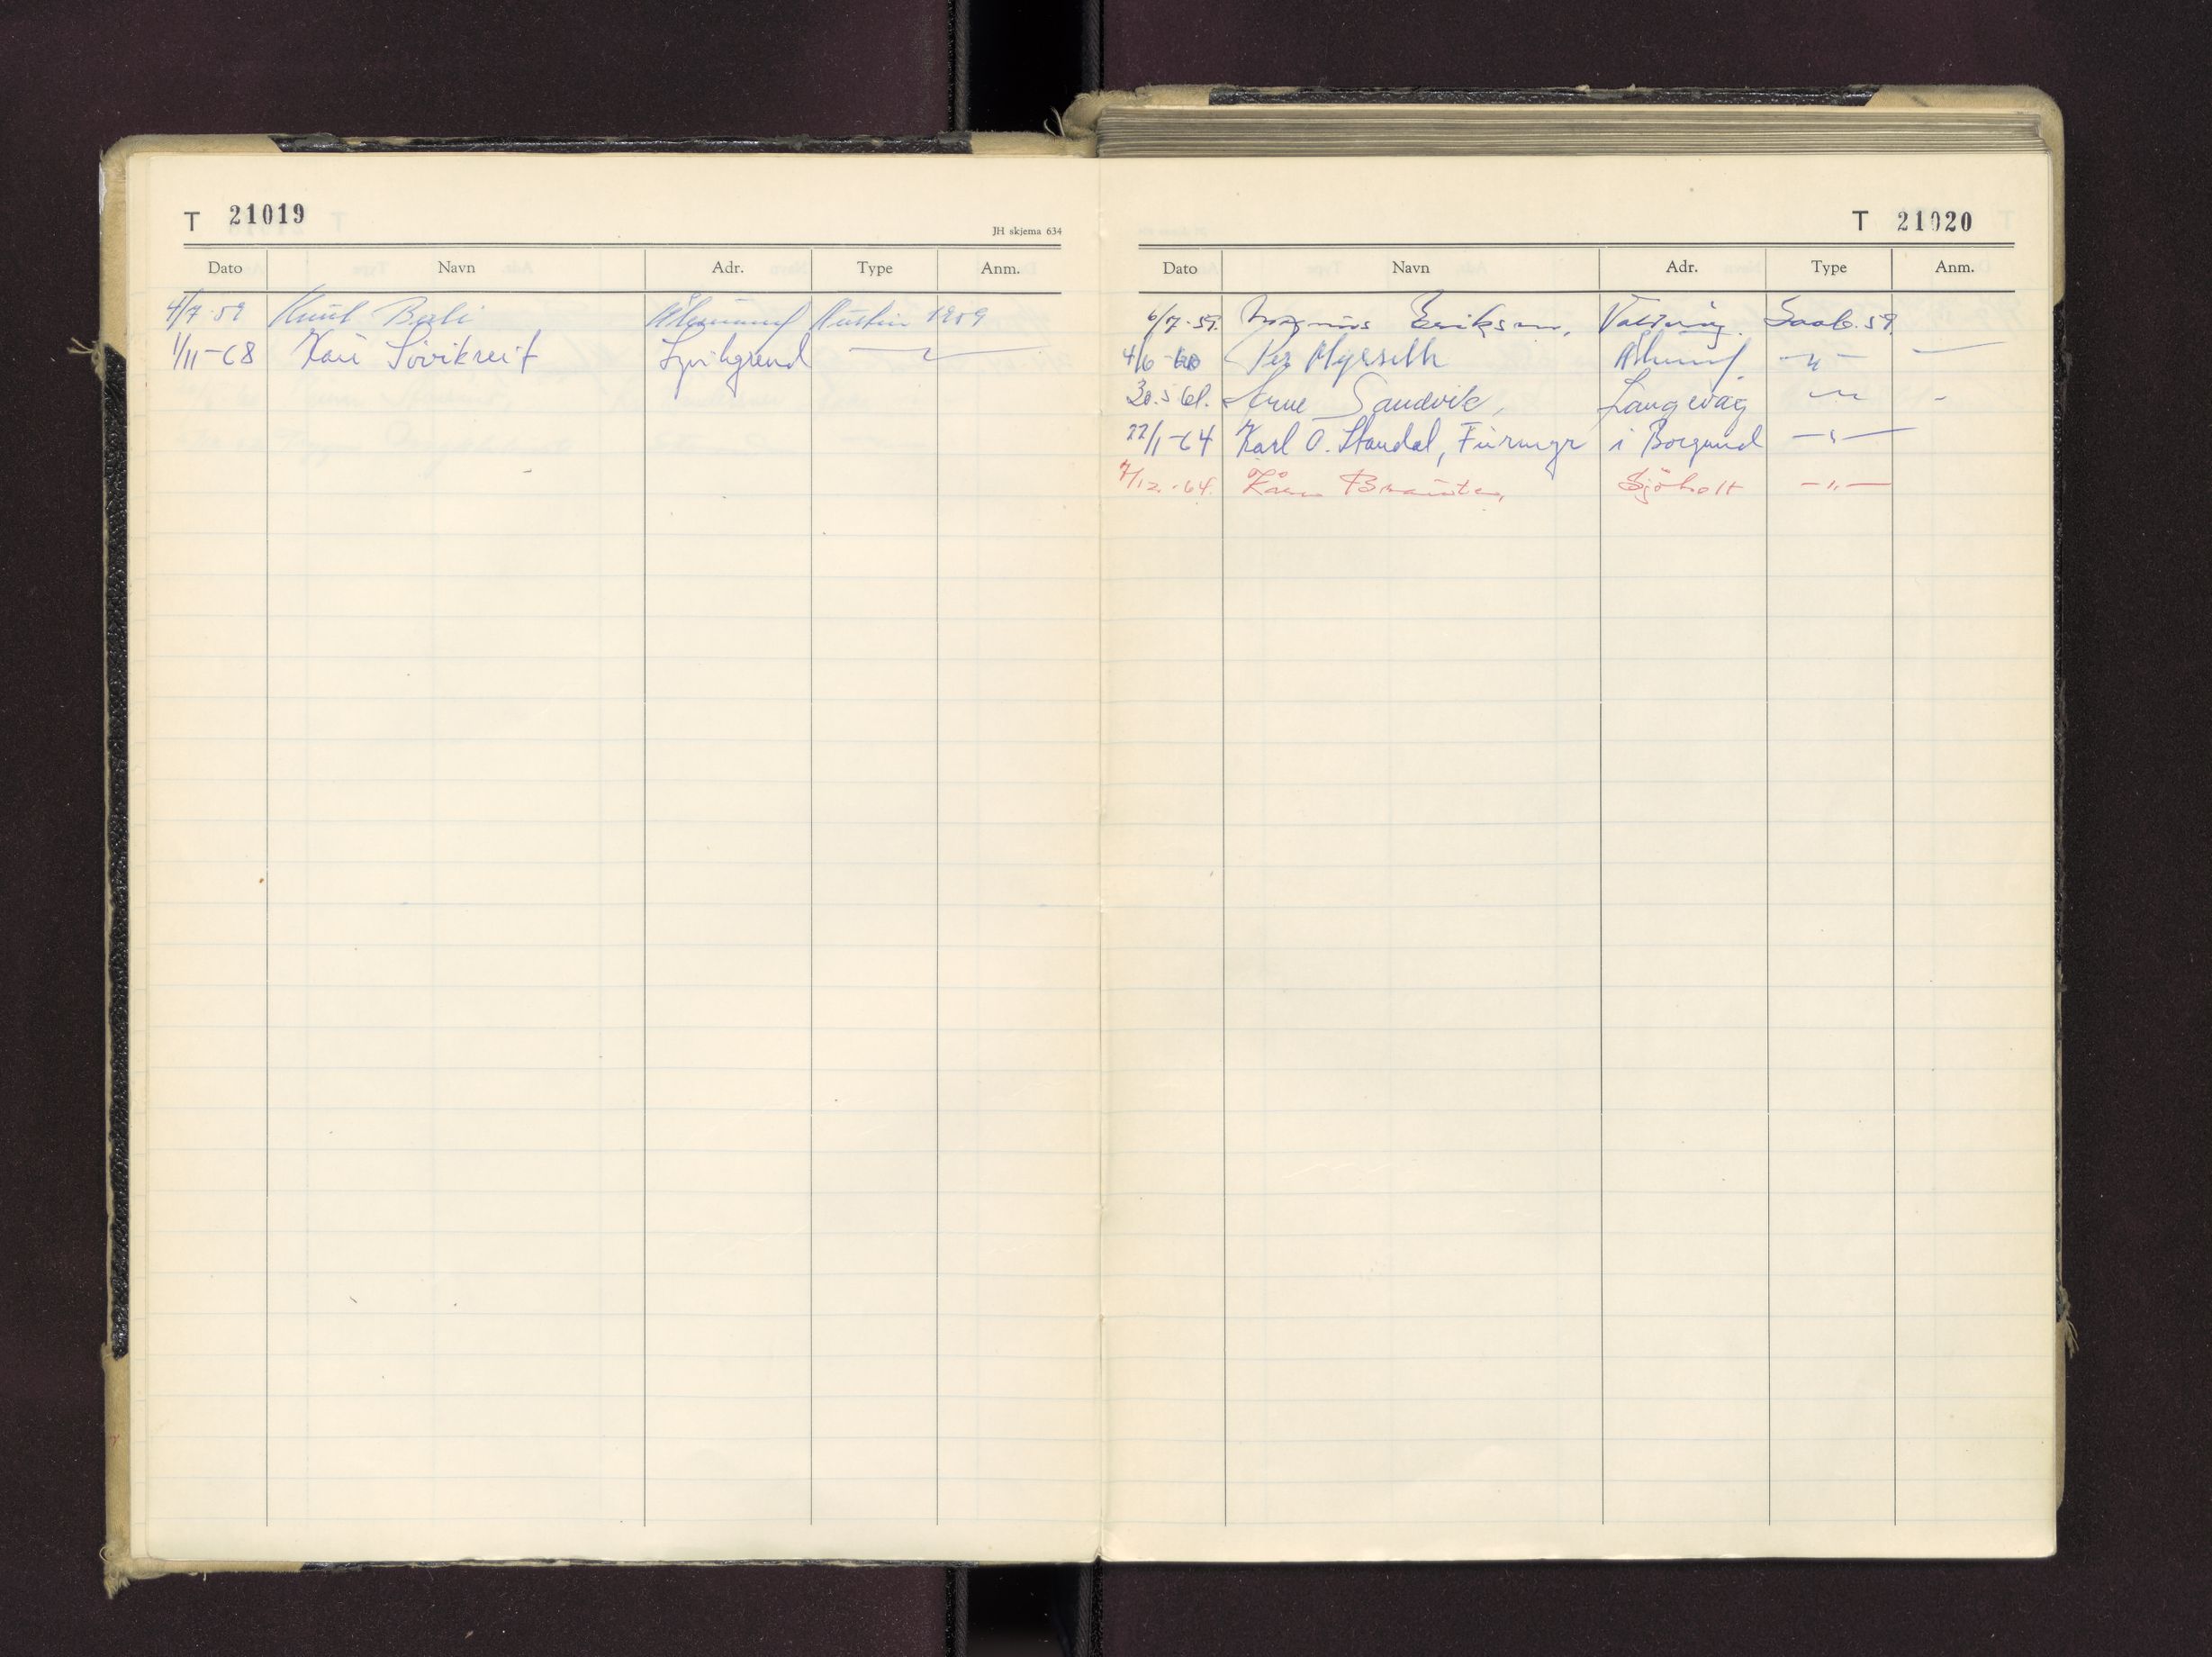 T 21019
JH skjema 634
Dato Navn Adr. Type Anm.
4/7-59 Knut Bali Ålesund Austin 1959
1/11-68 Kari
T 21020
Dato Navn Adr. Type Anm.
6/7-59. Magnus Eriksen, Saab. 59.
4/6-60 Per Myrseth Ålesund -"-
30.5 61. Arne Sandvik, Langevåg
22/1-64 Karl O. Standal, Furmyr i Borgund -"-
7/12.-64. Kåre Sjøholt -"-